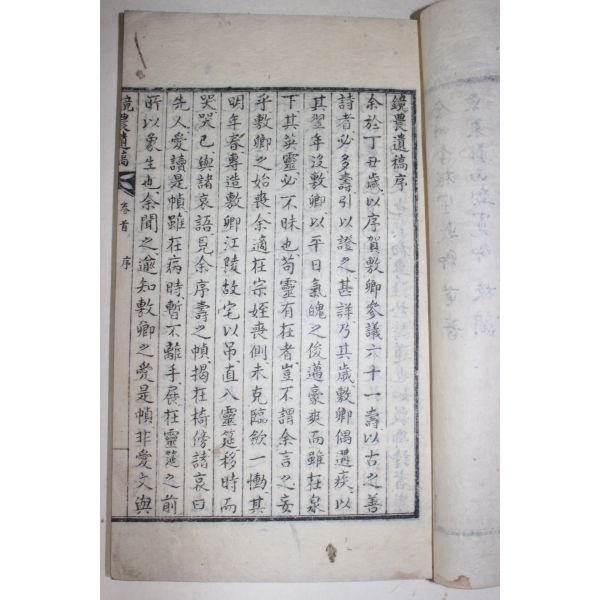 鏡農遺稿序
余於丁丑歲以序賀敷卿參議六十一壽以古之善
詩者必多壽引以證之甚詳乃其歲敷卿偶遘疾以
其翌年沒敷卿以平日氣魄之俊邁豪爽而雖在泉
下其英靈必不昧也苟靈有在者豈不謂余言之妄
乎敷卿之始喪余適在宗姪喪側未克臨斂一慟其
明年春專造敷卿江陵故宅以吊直入靈筵移時而
哭哭已與諸哀語見余序壽之幀揭在椅傍諸哀曰
先人愛讀是幀雖在病時暫不離手展在靈筵之前
所以象生也余聞之逾知敷卿之愛是幀非愛文與
鏡農遺稿
卷首
序